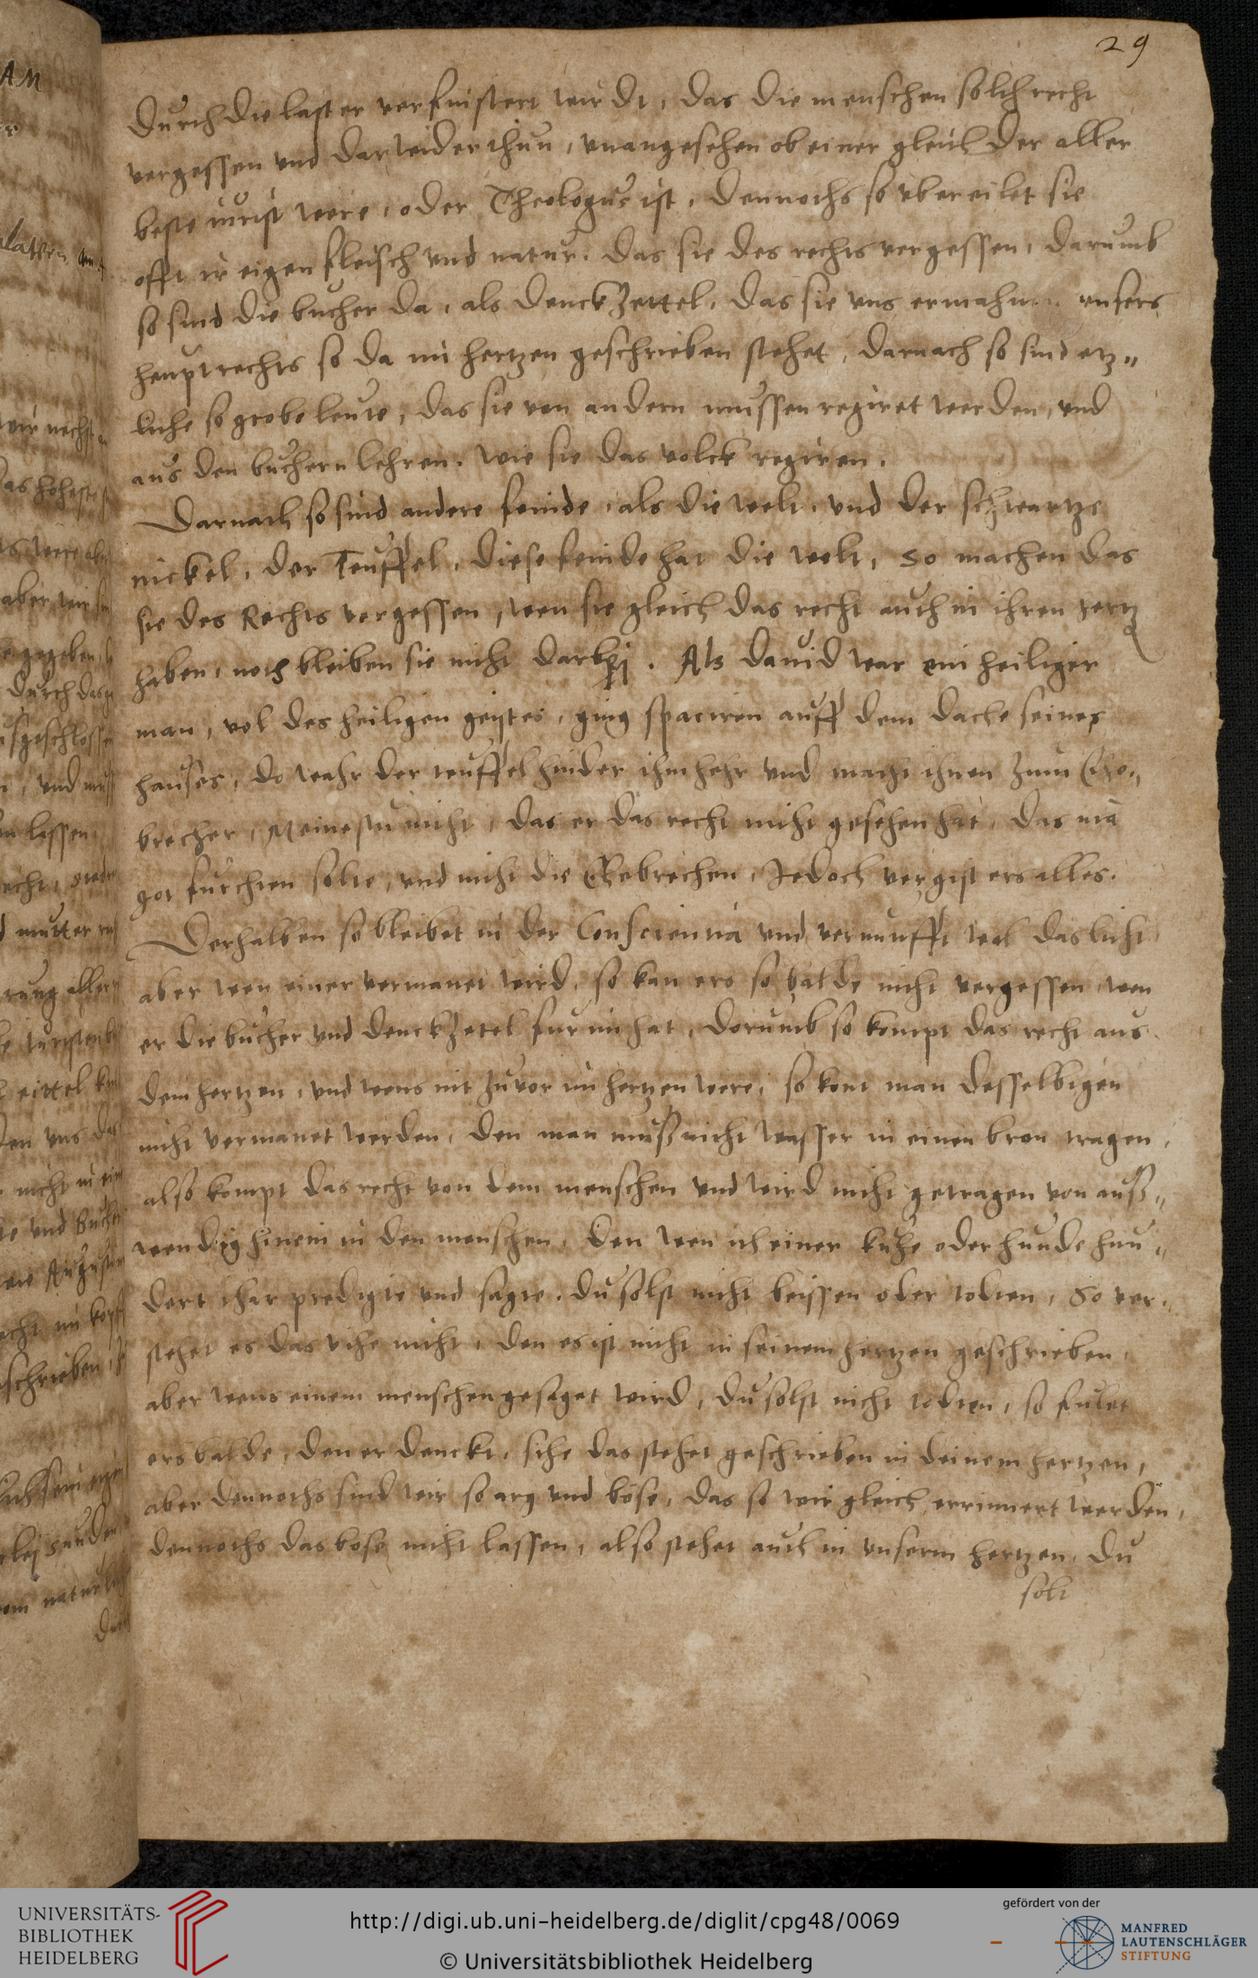 29
durch die laster verfinstert wirdt, das die menschen solch recht
vergessen vnd darwider thun, vnangesehen ob einer gleich der aller
beste iurist were, oder Theologus ist, dennochs so vbereilet sie
offt ir eigen fleisch vnd natur. das sie des rechts vergessen, darumb
so sind die bucher da, als denckzettel, das sie vns ermahnen vnsers
heuptrechts so da im hertzen geschrieben stehet, darnach so sind etz„
liche so grobe leute, das sie von andern mussen regiret werden, vnd
aus den buchern lehren. wie sie das volck regiren.
Darnach so sind andere feinde, als die welt, vnd der schwartze
nickel, der Teuffel, diese feinde hat die welt, so machen das
sie des Rechts vergessen, wen sie gleich das recht auch in ihren hertz
haben, noch bleiben sie nicht darbej. Als Dauid war ein heiliger
man, vol des heiligen geistes, ging spaciren auff dem dache seines
hauses, do wahr der teuffel hinder ihm hehr vnd macht ihnen zum Ehe„
brecher, Meinestu nicht, das er das recht nicht gesehen hat, das mā
got furchten solte, vnd nicht die Ehebrechen, Jedoch vergist ers alles.
Derhalben so bleibet in der Conscientia vnd vernunfft wol das licht
aber wen einer vermanet wird, so kan ers so balde nicht vergessen, wen
er die bucher vnd denckzetel fur im hat, dorumb so kompt das recht aus
dem hertzen, vnd wens nit zuvor im hertzen were, so kont man desselbigen
nicht vermanet werden, den man muß nicht wasser in einen bron tragen,
also kompt das recht von dem menschen vnd wird nicht getragen von auß„
wendig hinein in den menschen, den wen ich einer kuhe oder hunde hun„
dert ihar predigte vnd sagte. du solst nicht beissen oder todten, so ver„
stehet es das vihe nicht, den es ist nicht in seinem hertzen geschrieben,
aber wens einem menschen gesaget wird, du solst nicht todten, so fulet
ers balde, den er denckt, sihe das stehet geschrieben in deinem hertzen,
aber dennochs sind wir so arg vnd böse, das so wir gleich errinnert werden,
dennochs das bose nicht lassen, also stehet auch in vnserm hertzen, Du
solt
UNIVERSITÄTS-
BIBLIOTHEK
HEIDELBERG
http://digi.ub.uni-heidelberg.de/diglit/cpg48/0069
© Universitätsbibliothek Heidelberg
gefördert von der
MANFRED
LAUTENSCHLÄGER
STIFTUNG